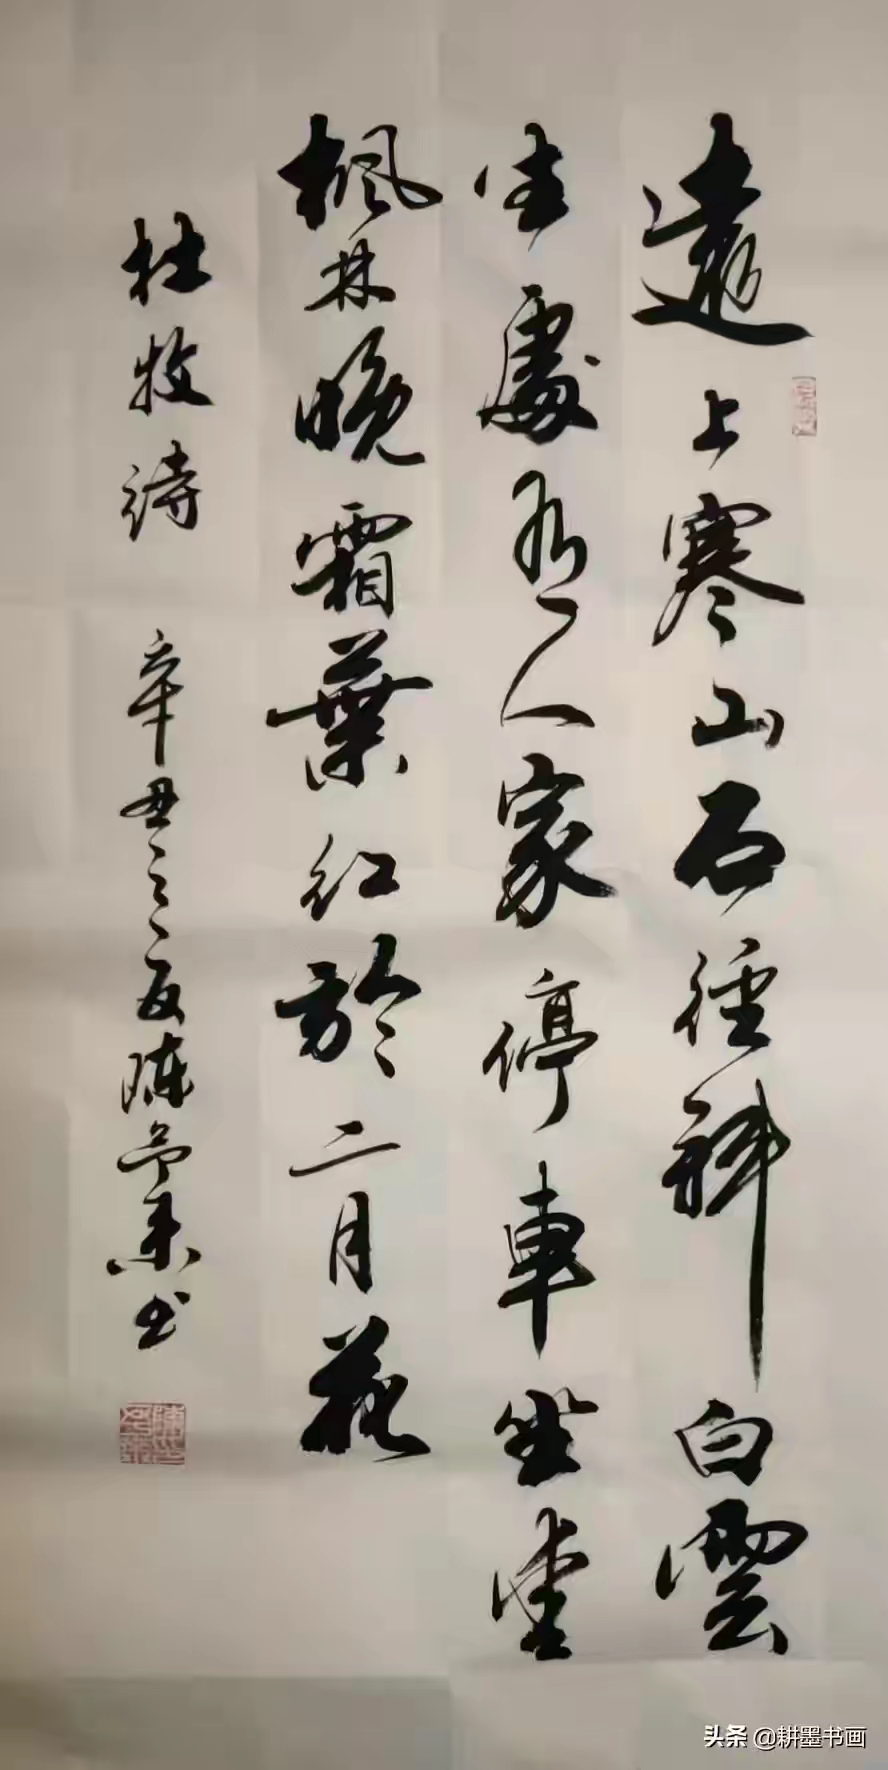 遠上寒山石徑斜白雲
生處有人家停車坐愛
楓林晚霜葉紅於二月花
杜牧詩 辛丑之夏陳书
头条 @耕墨书画